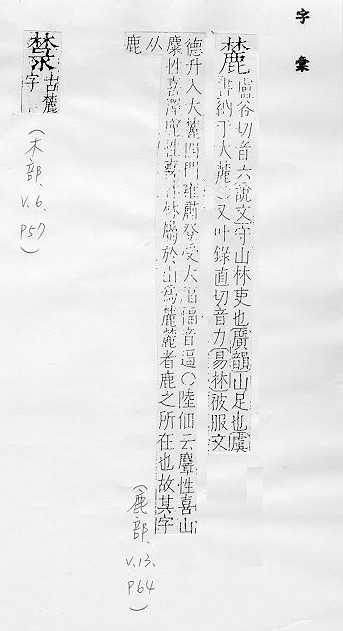 字彙
麓 盧谷切音六說文守山林吏也廣韻山足也虞
書納于大麓 又叶錄直切音力易林被服文
德升入大麓四門雍肅登受大福福音逼○陸佃云麞性喜山
麋性喜澤鹿性喜林林屬於山爲麓麓者鹿之所在也故其字
从鹿
(鹿部、v.13、p64)
禁 古麓字
(木部、v.6、p57)